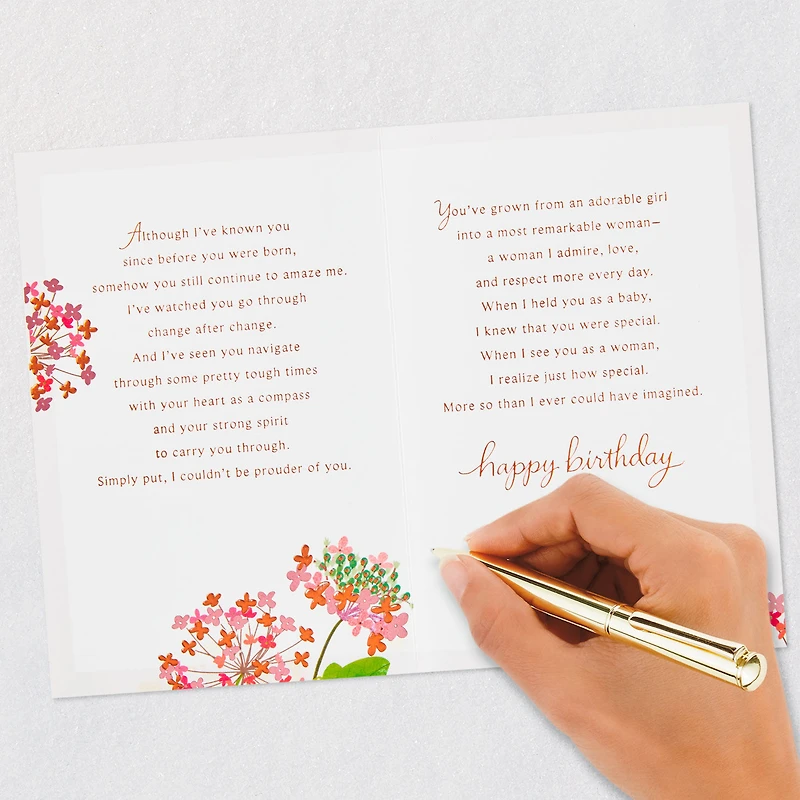 Although I've known you
since before you were born,
somehow you still continue to amaze me.
I've watched you go through
change after change.
And I've seen you navigate
through some pretty tough times
with your heart as a compass
and your strong spirit
to carry you through.
Simply put, I couldn't be prouder of you.
You've grown from an adorable girl
into a most remarkable woman—
a woman I admire, love,
and respect more every day.
When I held you as a baby,
I knew that you were special.
When I see you as a woman,
I realize just how special.
More so than I ever could have imagined.
happy birthday